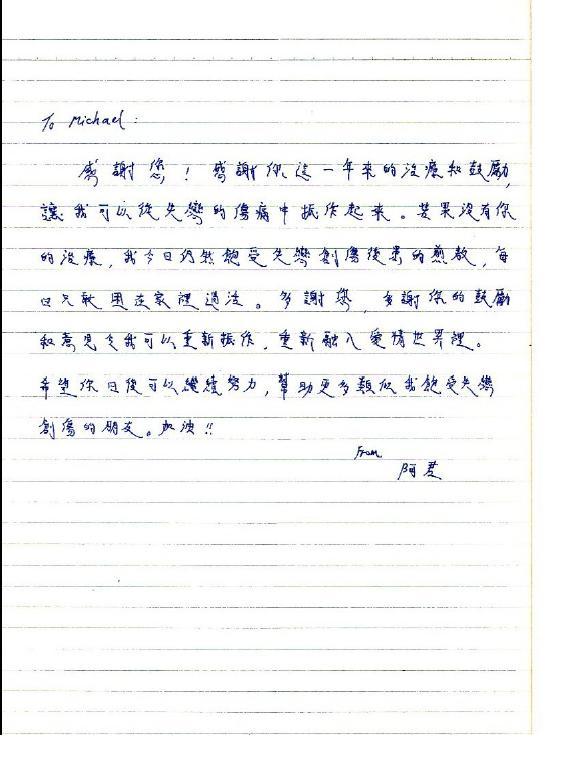 To Michael:
感謝您！感謝你這一年來的治療和鼓勵,
讓我可以從失戀的傷痛中振作起來。若果沒有你
的治療,我今日仍然飽受失戀創傷後患的煎熬,每
日只敢困在家裡過活。多謝您,多謝你的鼓勵
和意見令我可以重新振作,重新融入愛情世界裡。
希望你日後可以繼續努力,幫助更多類似我飽受失戀
創傷的朋友。加油!!
From
阿君